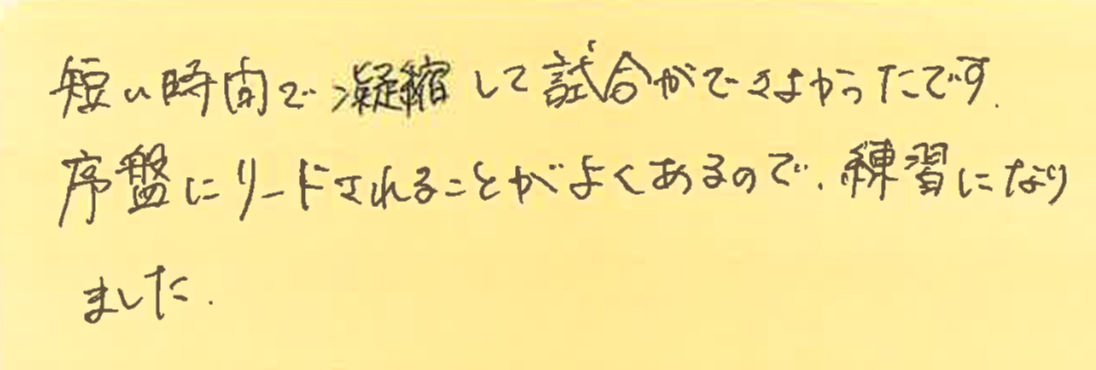 短い時間で凝縮して試合ができよかったです.
序盤にリードされることがよくあるので、練習になり
ました.